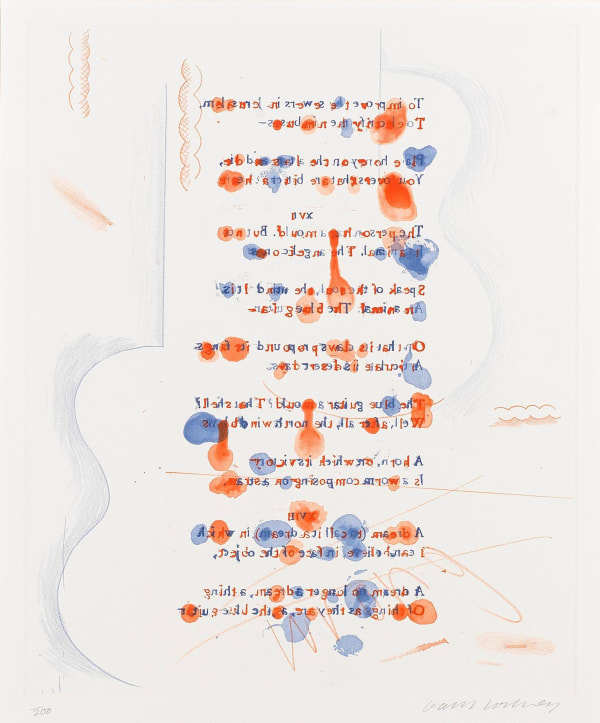 To improve the sewers in Jerusalem,
To electrify the nimbuses—
Place honey on the altars and die,
You lovers that are bitter at heart.
XVII
The person has a mould. But not
Its animal. The angelic ones
Speak of the soul, the mind. It is
An animal. The blue guitar—
On that its claws propound, its fangs
Articulate its desert days.
The blue guitar a mould? That shell?
Well, after all, the north wind blows
A horn, on which its victory
Is a worm composing on a straw.
XVIII
A dream (to call it a dream) in which
I can believe, in face of the object,
A dream no longer a dream, a thing
Of things as they are, as the blue guitar
/200 David Hockney